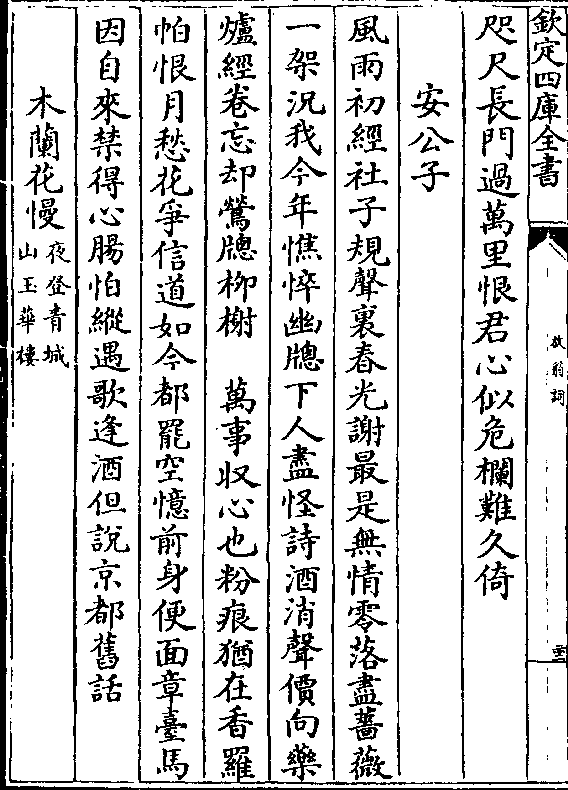 欽定四庫全書
放翁詞
咫尺長門過萬里恨君心似危欄難久倚
安公子
風雨初經社子規聲裏春光謝最是無情零落盡薔薇
一架況我今年憔悴幽牕下人盡怪詩酒消聲價向藥
爐經卷忘却鶯牕柳榭　萬事収心也粉痕猶在香羅
帕恨月愁花爭信道如今都罷空憶前身便面章臺馬
因自來禁得心腸怕縱遇歌逢酒但說京都舊話
木蘭花慢夜登青城山玉華樓